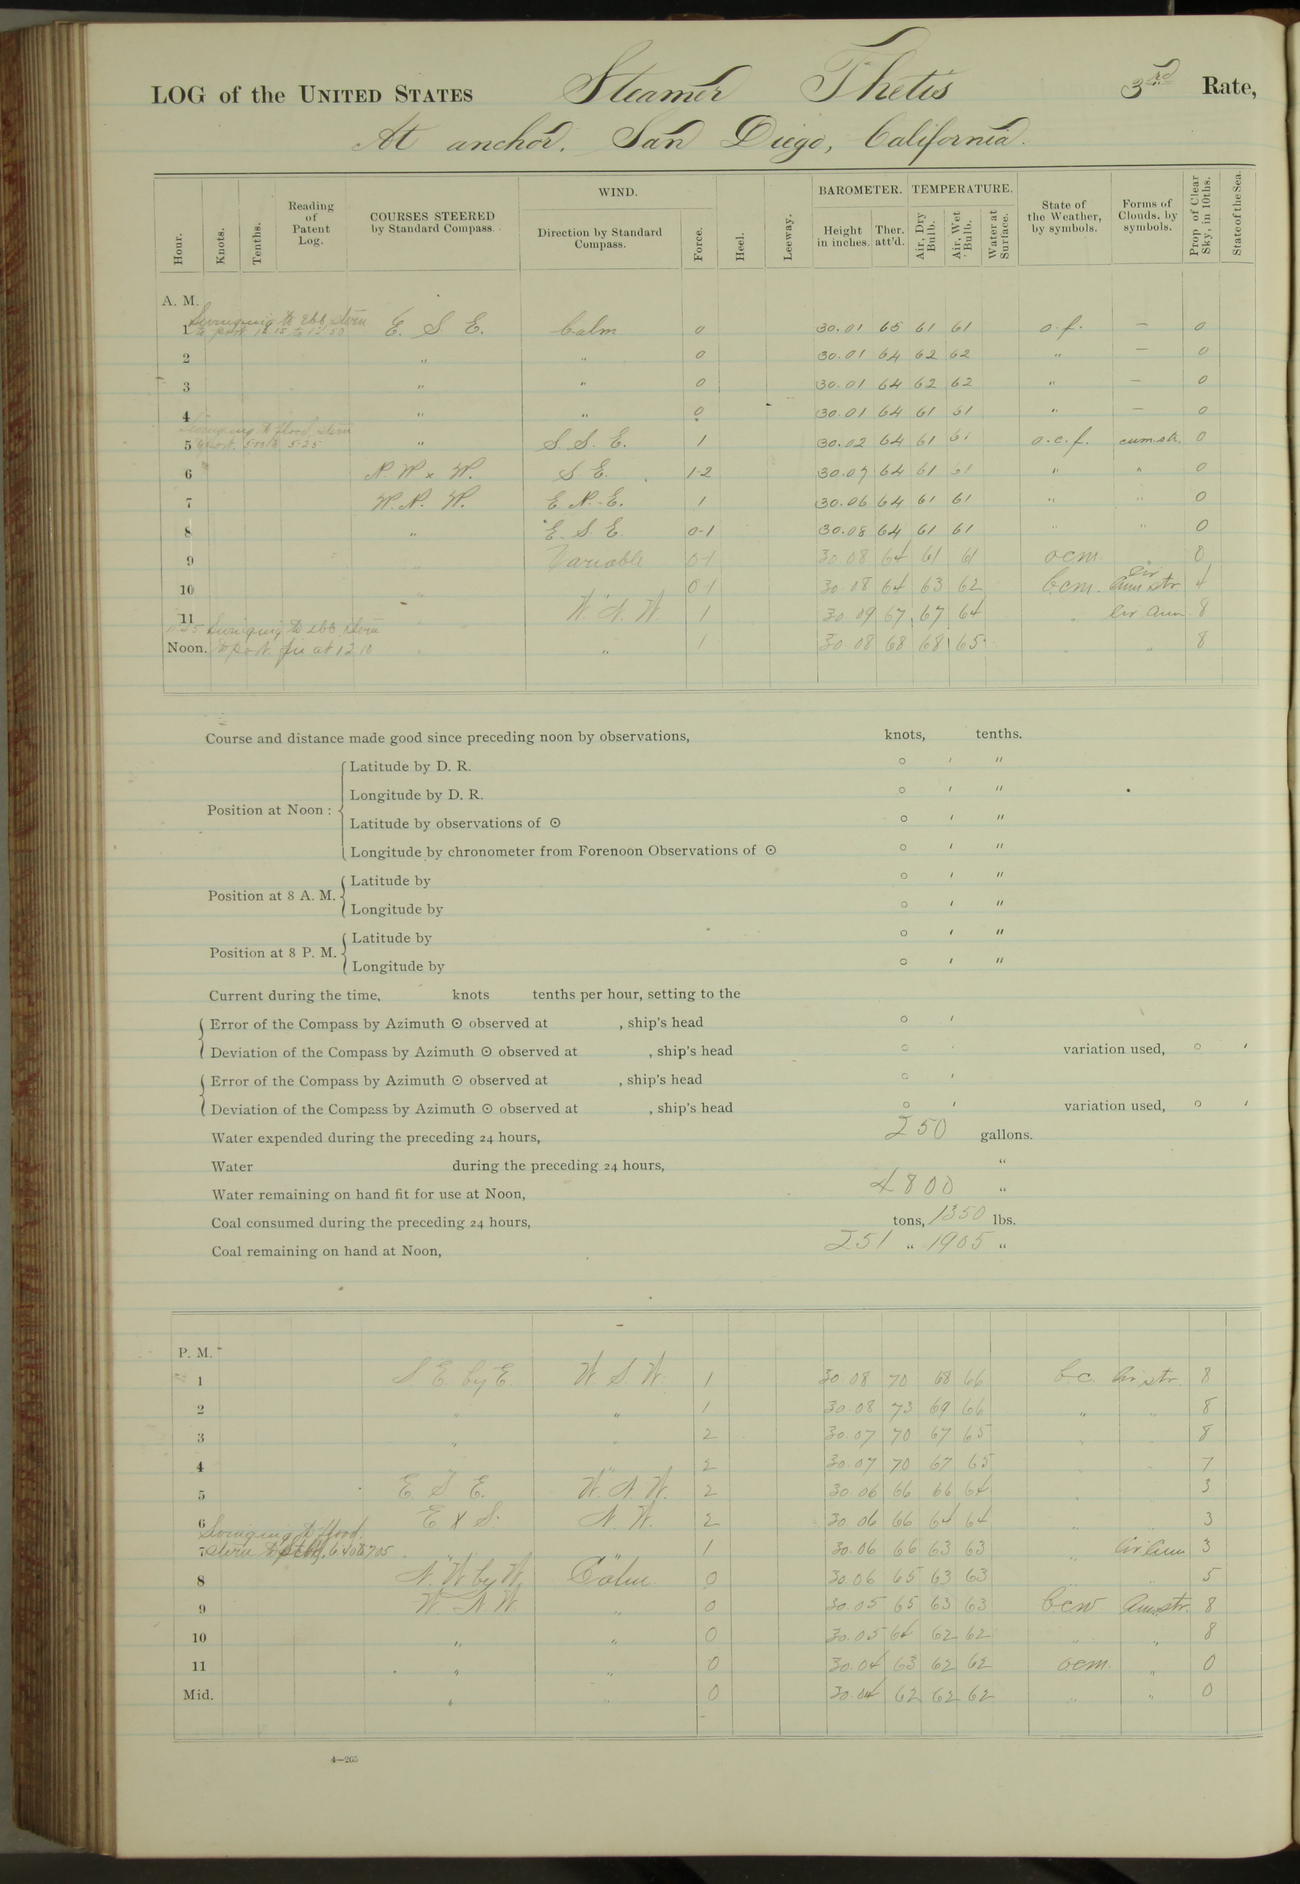 LOG of the UNITED STATES Steamer Thetis 3rd Rate,
At anchor. San Diego, California.
Hour. Knots. Tenths. Reading of Patent Log. COURSES STEERED by Standard Compass. WIND. Direction by Standard Compass. Force. Heel. Leeway. BAROMETER. Height in inches. Ther. att'd. TEMPERATURE. Air, Dry Bulb. Air, Wet Bulb. Water at Surface. State of the Weather, by symbols. Forms of Clouds, by symbols. Prop. of Clear Sky, in 10ths. State of the Sea.
A. M.
Swinging to ebb, stern
to port 12 15 to 12 50
1 E. S E. Calm 0 30.01 65 61 61 o.f. — 0
2 " " 0 30.01 64 62 62 " — 0
3 " " 0 30.01 64 62 62 " — 0
4 " " 0 30.01 64 61 61 " — 0
Swinging to flood, stern
5 to port. 5 25 " S S. E. 1 30.02 64 61 61 o.c.f. cum.str. 0
6 N. W x W. S E. 1-2 30.07 64 61 61 " " 0
7 W. N. W. E. N. E. 1 30.06 64 61 61 " " 0
8 " E. S. E. 0-1 30.08 64 61 61 " " 0
9 " Variable 0-1 30.08 64 61 61 ocm 0
10 " " 0-1 30.08 64 63 62 bcm. cir cum str. 4
11 W. N. W 1 30.09 67 67 64 " cir cum 8
11 25 Swinging to ebb, stern
Noon. to port. fin at 12 10 " " 1 30.08 68 68 65 " " 8
Course and distance made good since preceding noon by observations, knots, tenths.
Position at Noon: Latitude by D. R. ° ′ ″
Longitude by D. R. ° ′ ″
Latitude by observations of ⊙ ° ′ ″
Longitude by chronometer from Forenoon Observations of ⊙ ° ′ ″
Position at 8 A. M. Latitude by ° ′ ″
Longitude by ° ′ ″
Position at 8 P. M. Latitude by ° ′ ″
Longitude by ° ′ ″
Current during the time, knots tenths per hour, setting to the
Error of the Compass by Azimuth ⊙ observed at , ship's head ° ′
Deviation of the Compass by Azimuth ⊙ observed at , ship's head ° ′ variation used, ° ′
Error of the Compass by Azimuth ⊙ observed at , ship's head ° ′
Deviation of the Compass by Azimuth ⊙ observed at , ship's head ° ′ variation used, ° ′
Water expended during the preceding 24 hours, 250 gallons.
Water during the preceding 24 hours, "
Water remaining on hand fit for use at Noon, 4800 "
Coal consumed during the preceding 24 hours, tons, 1350 lbs.
Coal remaining on hand at Noon, 251 " 1905 "
P. M.
1 S E. by E. W S. W. 1 30.08 70 68 66 b.c. cir str. 8
2 " " 1 30.08 73 69 66 " " 8
3 " " 2 30.07 70 67 65 " " 8
4 " " 2 30.07 70 67 65 " " 7
5 E. S E. W. N. W. 2 30.06 66 66 64 " " 3
6 E x S. N. W. 2 30.06 66 64 64 " " 3
Swinging to flood.
7 stern to stbd, 6 40 to 7 05 " " 1 30.06 66 63 63 " cir cum 3
8 N. W by W. Calm 0 30.06 65 63 63 " " 5
9 W N W " 0 30.05 65 63 63 bcw cum.str. 8
10 " " 0 30.05 64 62 62 " " 8
11 " " 0 30.04 63 62 62 ocm. " 0
Mid. " " 0 30.04 62 62 62 " " 0
4—265